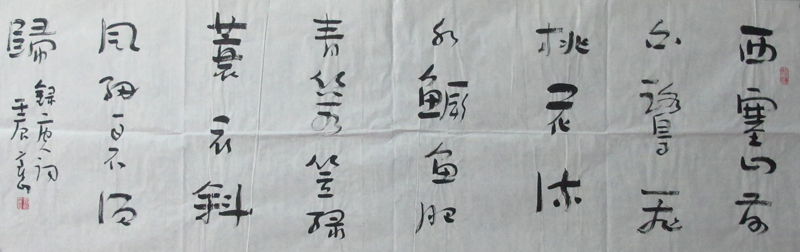 西塞山前
白鷺飛
桃花流
水鱖魚肥
青箬笠綠
蓑衣斜
風細雨不須
歸
錄唐詞